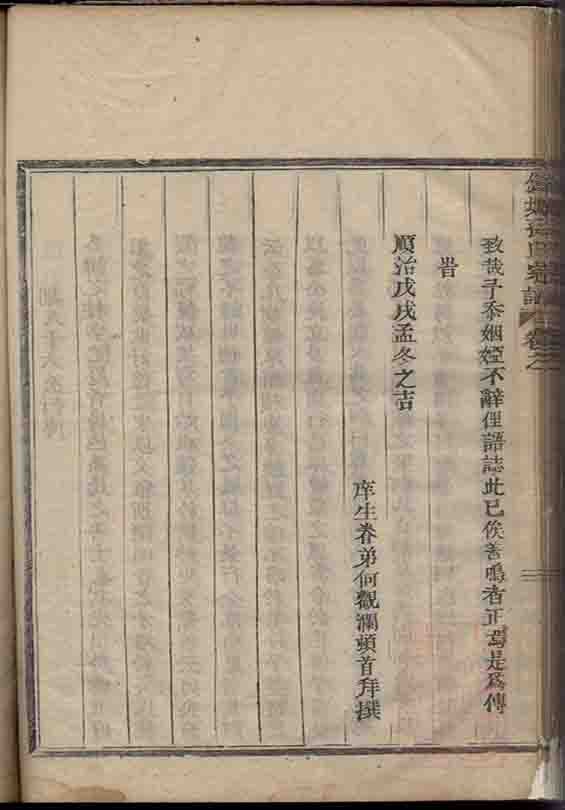 氏宗譜 卷之
致哉予忝姻婭不辭俚語誌此已俟善鳴者正焉是爲傳
旹
順治戊戌孟冬之吉
庠生眷弟何觀瀾頓首拜撰